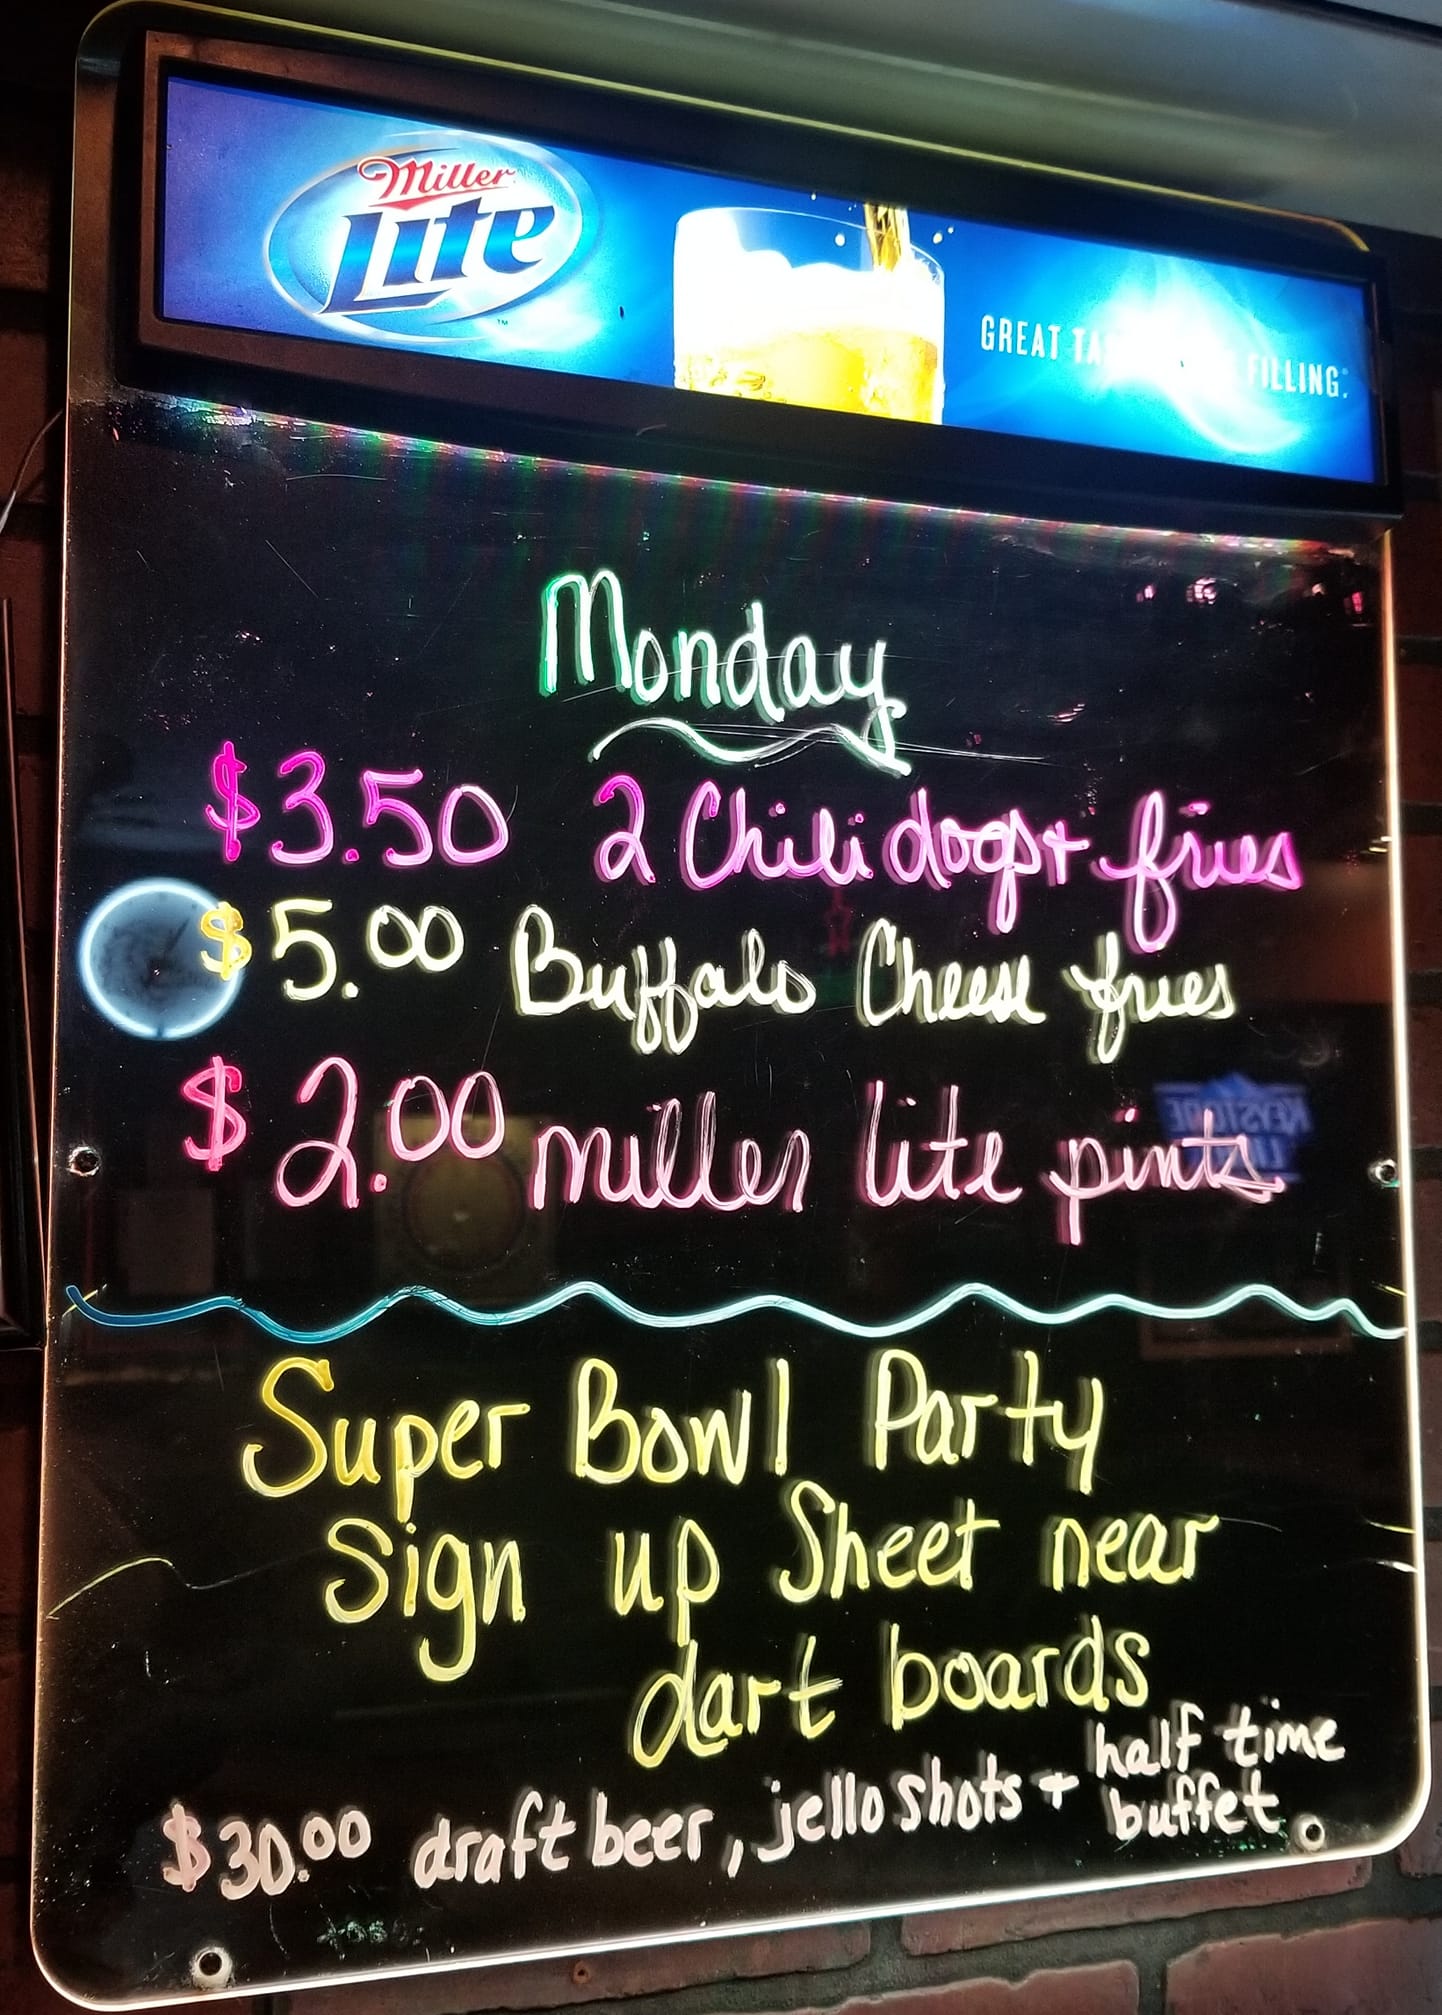 Miller
Lite
GREAT FILLING.
Monday
$3.50 2 Chili dogs + fries
$5.00 Buffalo Cheese fries
$2.00 miller lite pints
Super Bowl Party
Sign up Sheet near
dart boards
$30.00 draft beer, jello shots + half time
buffet
KEYSTONE